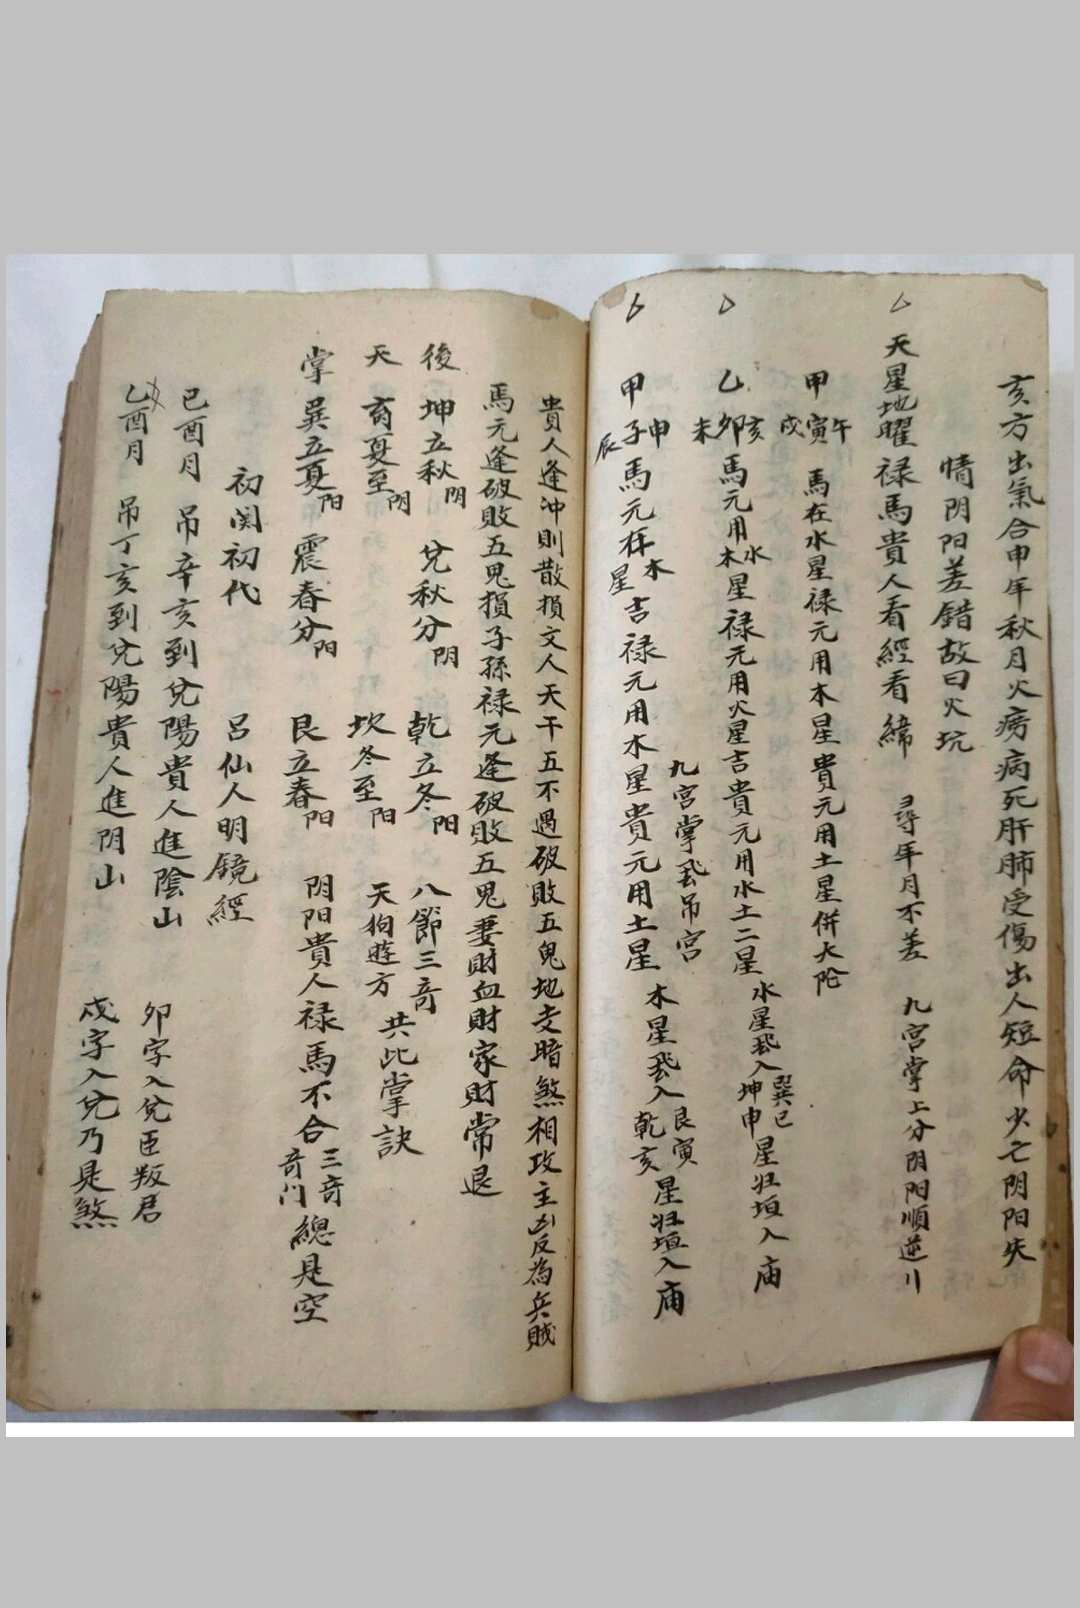 亥方出氣合申年秋月火癆病死肝肺受傷出人短命少亡阴阳失
情阴阳差錯故曰火坑
天星地曜禄馬貴人看經看緯 尋年月不差 九宮掌上分阴阳順逆行
甲寅午戌 馬在水星禄元用木星貴元用土星併太陀
乙卯亥未馬元用水木星禄元用火星吉貴元用水土二星 水星飛入巽巳坤申星归垣入庙
九宮掌飛吊宮
甲子申辰馬元在木星吉禄元用水星貴元用土星 木星飛入艮寅乾亥星归垣入庙
貴人逢冲則散損文人天干五不遇破敗五鬼地支暗煞相攻主凶反為兵賊
馬元逢破敗五鬼損子孫禄元逢破敗五鬼妻財血財家財常退
後 坤立秋阴 兌秋分阴 乾立冬阳 八節三奇
天 离夏至阴 坎冬至阳 天狗遊方 共此掌訣
掌 巽立夏阳 震春分阳 艮立春阳 阴阳貴人禄馬不合三奇奇门總是空
初関初代 吕仙人明镜經
己酉月 吊辛亥到兌陽貴人進陰山 卯字入兌臣叛君
乙酉月 吊丁亥到兌陽貴人進阴山 戌字入兌乃是煞